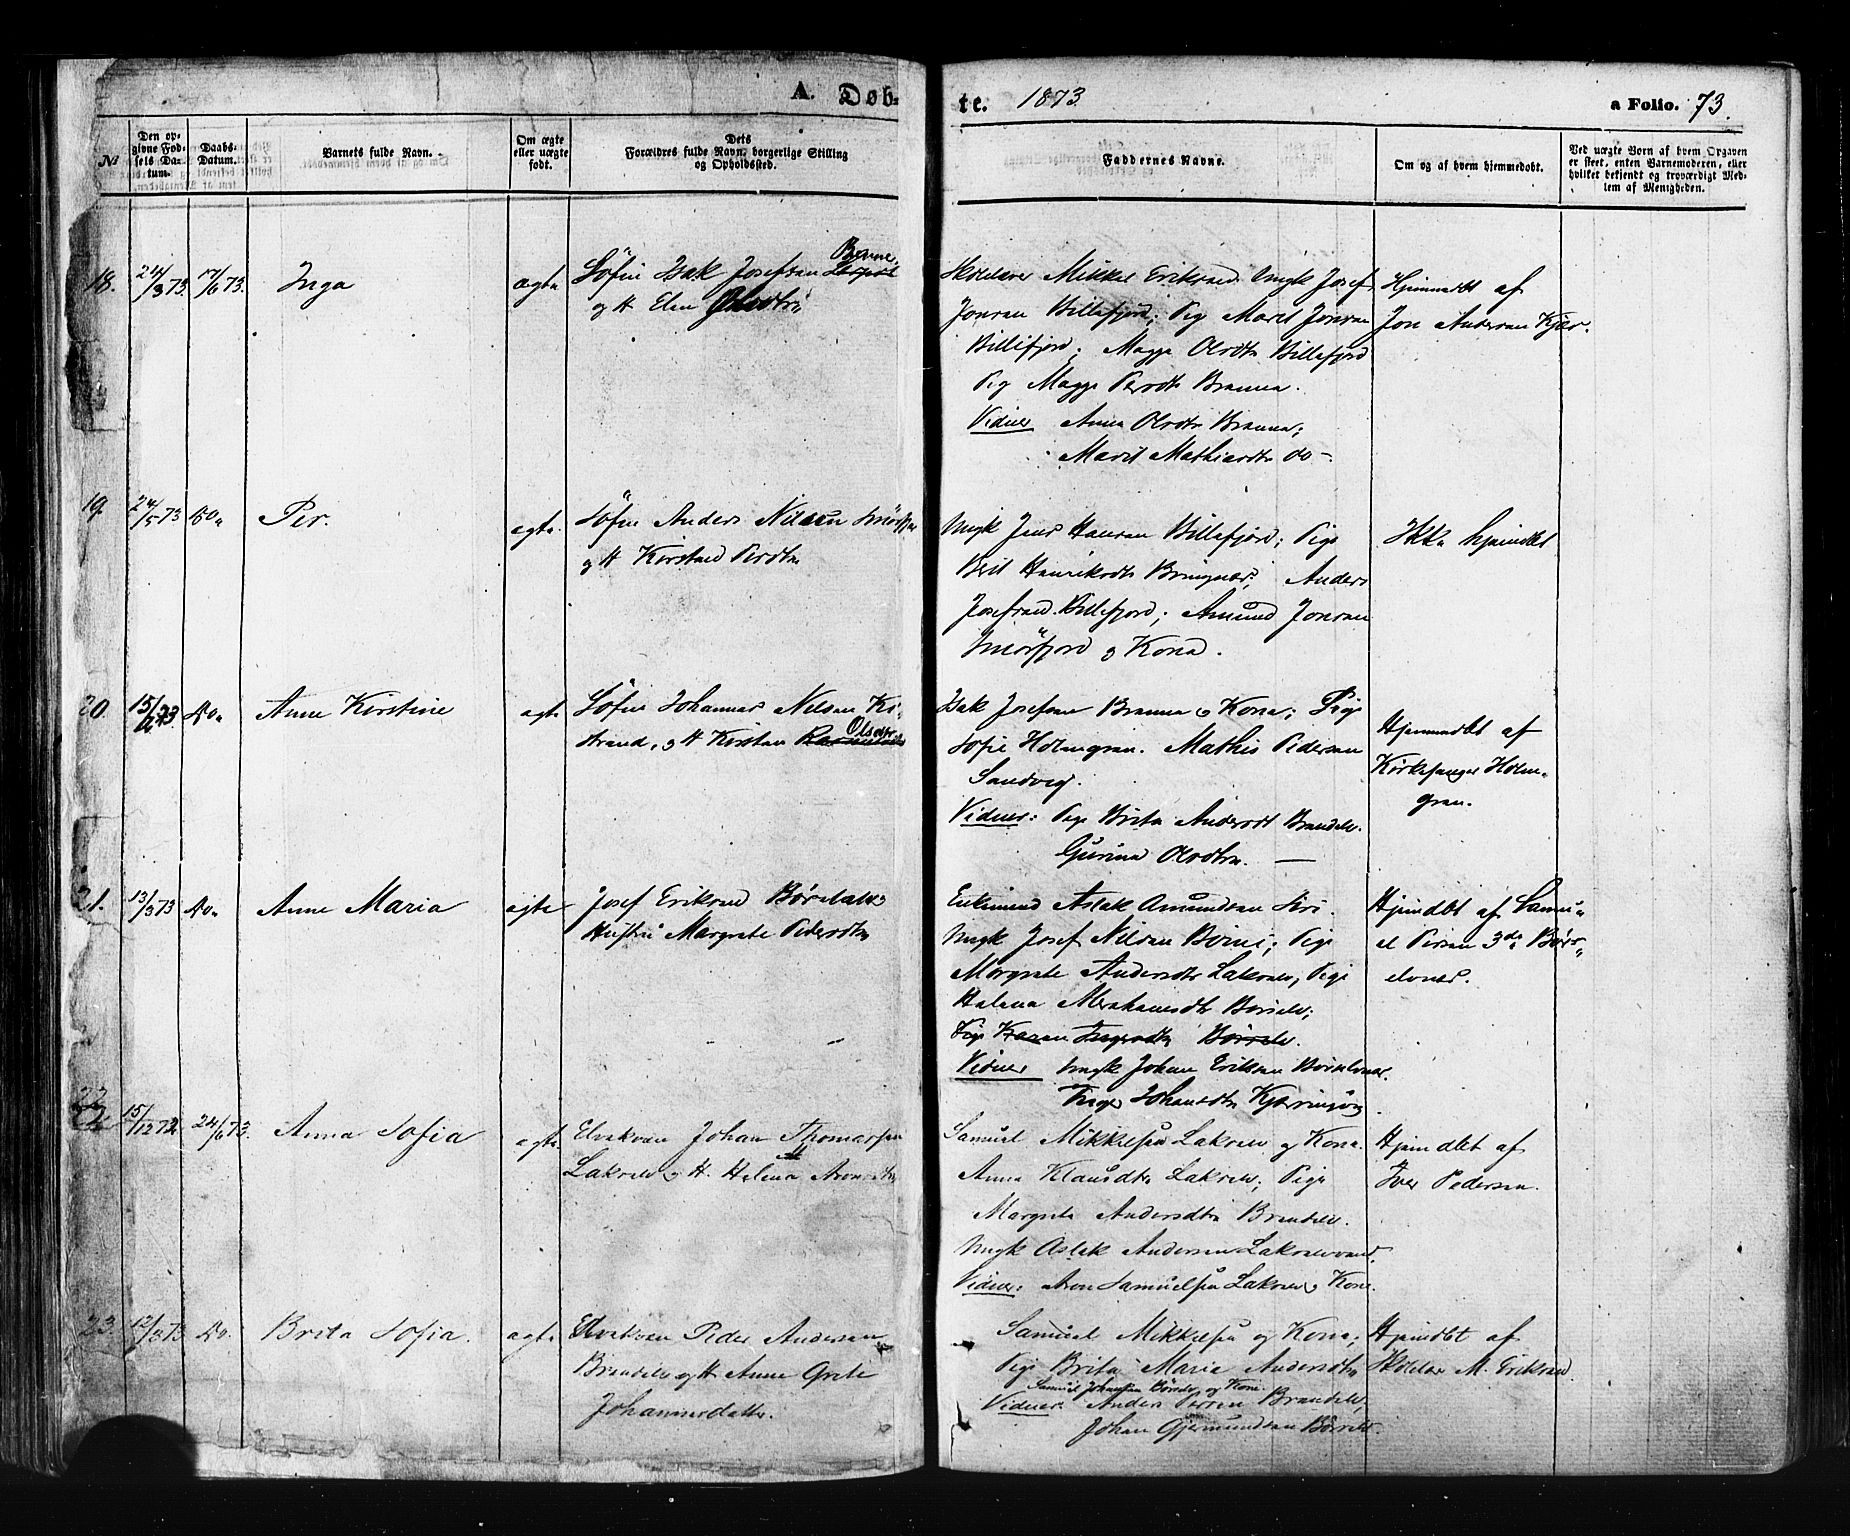 A. Døb-
te. 1873. a Folio. 73.
No
Den op-
givne Fød-
sels Da-
tum.
Daabs-
Datum.
Barnets fulde Navn.
Om ægte
eller uægte
født.
Dets
Forældres fulde Navn, borgerlige Stilling
og Opholdssted.
Faddernes Navne.
Om og af hvem hjemmedøbt.
Ved uægte Børn af hvem Opgaven
er skeet, enten Barnemoderen, eller
hvilket bekjendt og troværdigt Med-
lem af Menigheden.
18. 24/3 73. 17/6 73. Inga ægte
Söfin Isak Josefsen
og H Elen
Mikkel Eriksen Ungk Josef
Jonsen Billefjord; Pig Marit Jonsen
Billefjord; Magga Olsdtr Billefjord
Pig Magga Persdtr Brenna.
Vidner Anna Olsdtr Brenna;
Marit Mathisdtr do –
Hjemmedbt af
Jon Andersen Kjær.
19. 24/5 73 Do. Per. ægte.
Söfin Anders Nilsen
og H Kirsten Persdtr
Ungk Jens Hansen Billefjord; Pige
Berit Henriksdtr; Anders
Josefsen Billefjord; Amund Jonsen
Smörfjord og Kone.
Ikke hjemdbt
20. 15/ 73 Do. Anne Kirstine ægte
Söfin Johannes Nilsen Ki-
strand, og H Kirsten Olsdtr
Isak Josefsen Brenna og Kone; Pige
Sofie Holmgren. Mathis Pedersen
Sandvig.
Vidner: Pige Brita Andersdt Brendelv.
Gurina Olsdtr. —
Hjemmedbt af
Kirkesanger Holm-
gren.
21. 13/3 73 Do. Anne Maria ægte
Josef Eriksen Børselv
Hustru Margrete Pedersdtr
Enkemand Aslak Amundsen
Ungk Josef Nilsen; Pige
Margrete Andersdtr Lakselv; Pige
Helena Abrahamsdtr Børselv;
Pige Karen Børselv.
Vidner Ungk Johan Eriksen Børselvnes.
Inger Johansdtr
Hjemdbt af Samu-
el Persen 3de Børs-
elvnes.
22. 15/12 72 24/6 73. Anna Sofia ægte.
Elvekvæn Johan Thomassen
Lakselv og H. Helena
Samuel Mikkelsen Lakselv og Kone
Anna Klausdtr Lakselv; Pige
Margrete Andersdtr Brendelv.
Ungk Aslak Andersen Lakselvvand
Vidner: Aron Samuelsen Lakselv og Kone.
Hjemdbt af
Iver Pedersen.
23. 12/3 73 Do. Brita Sofia. ægte
Elvekvæn Peder Andersen
Brendelv og H Anne Grete
Johannesdatter.
Samuel Mikkelsen og Kone;
Pige Brita Maria Andersdtr
Samuel Johansen Børselv og Kone
Vidner: Anders Persen Brendelv;
Johan Gjermundsen Børselv.
Hjemdbt af
M. Eriksen.